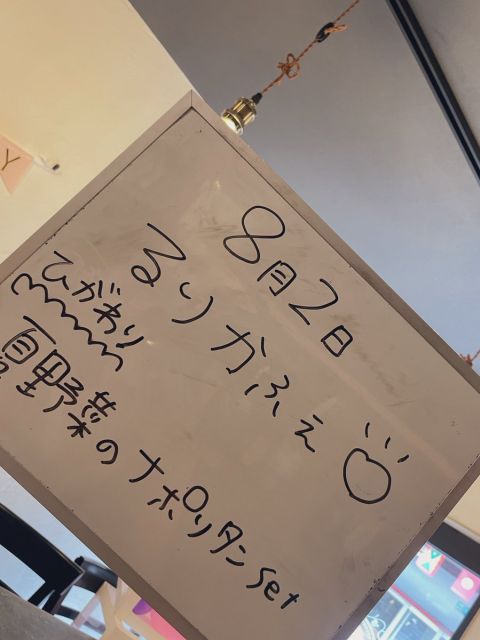 8月2日
るりかふぇ
ひがわり
夏野菜のナポリタンset
Y